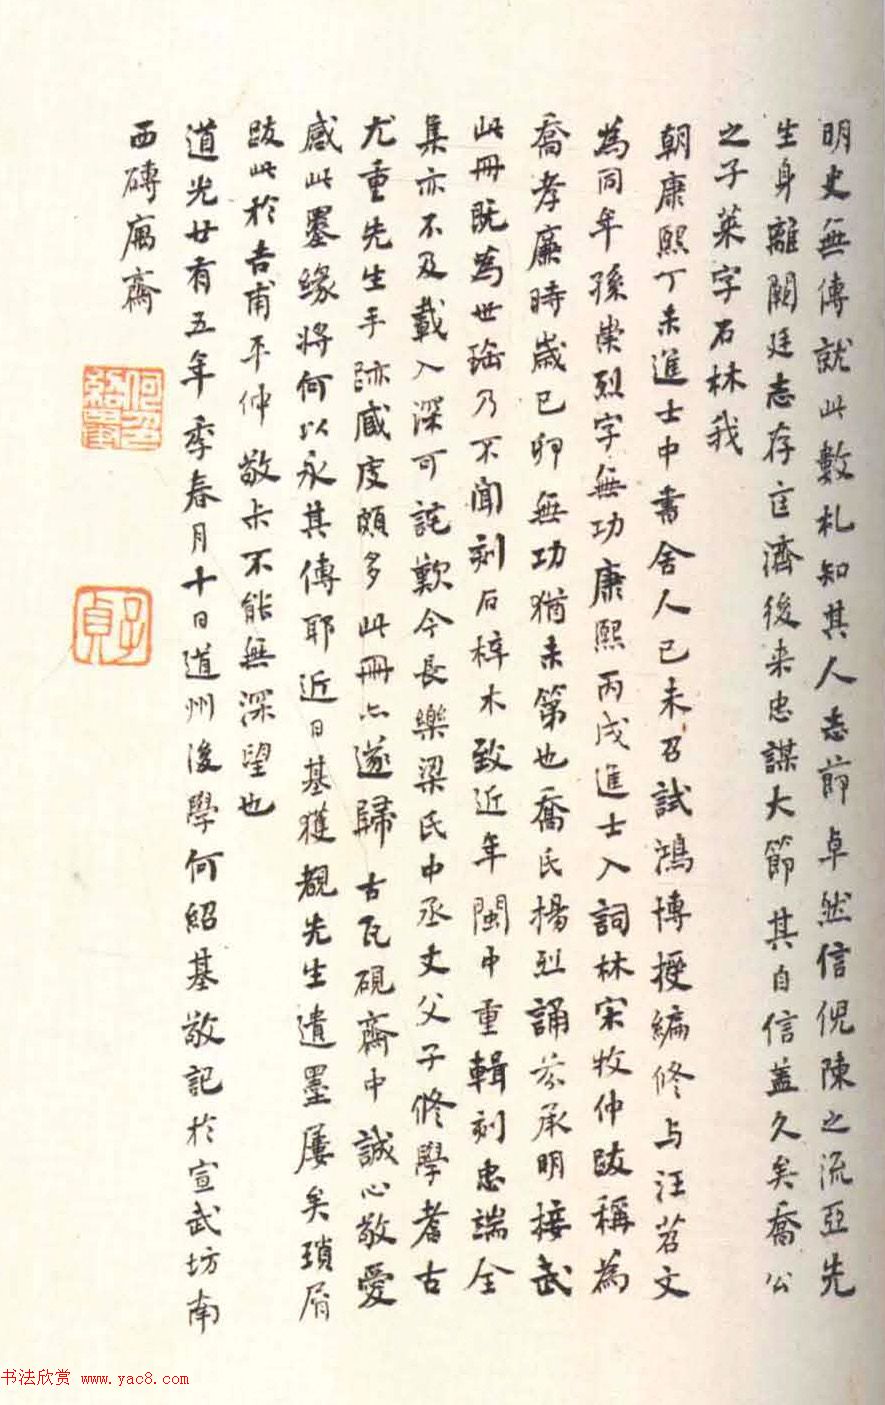 明史無傳就此數札知其人志節卓然信倪陳之流亞先
生身離闕廷志存匡濟後来忠謀大節其自信蓋久矣喬公
之子萊字石林我
朝康熙丁未進士中書舍人己未召試鴻博授編修与汪苕文
為同年孫崇烈字無功康熙丙戌進士入詞林宋牧仲跋稱為
喬孝廉時歲己卯無功猶未第也喬氏楊烈誦芬承明接武
此冊既為世珤乃不聞刻石梓木致近年閩中重輯刻忠端全
集亦不及載入深可詫歎今長樂梁氏中丞丈父子修學耆古
尤重先生手跡臧庋頗多此冊亦遂歸古瓦硯齋中誠心敬愛
感此墨緣將何以永其傳耶近日基獲觀先生遺墨屢矣瑣屑
跋此於吉甫平仲敬未不能無深望也
道光廿有五年季春月十日道州後學何紹基敬記於宣武坊南
西磚寓齋
何紹基
子貞
书法欣赏 www.yac8.com